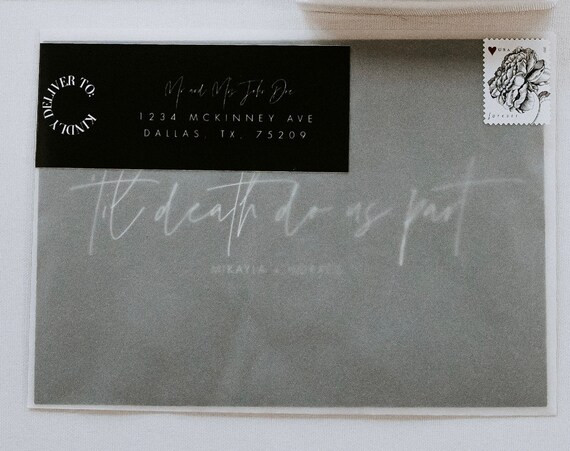 KINDLY DELIVER TO:
Mr and Mrs John Doe
1234 MCKINNEY AVE
DALLAS, TX, 75209
USA
forever
'til death do us part
MIKAYLA +